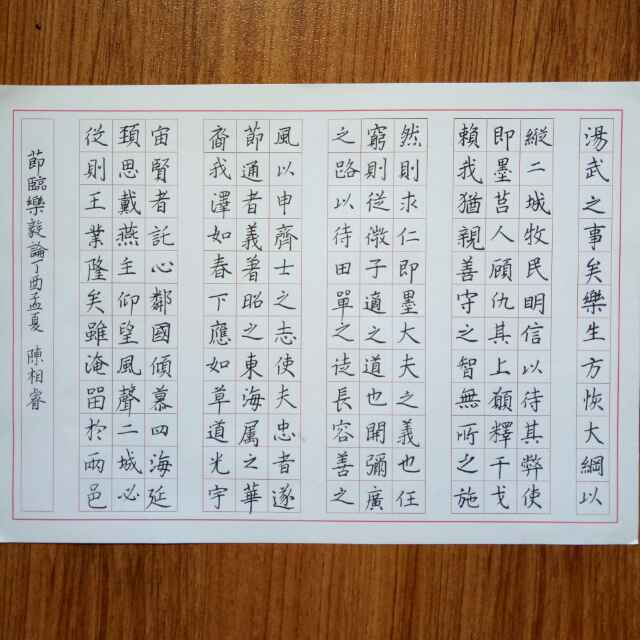 湯武之事矣樂生方恢大綱以
縱二城牧民明信以待其弊使
即墨莒人顧仇其上願釋干戈
賴我猶親善守之智無所之施
然則求仁即墨大夫之義也任
窮則從微子適之道也開彌廣
之路以待田單之徒長容善之
風以申齊士之志使夫忠者遂
節通者義著昭之東海属之華
裔我澤如春下應如草道光宇
宙賢者託心鄰國傾慕四海延
頸思戴燕主仰望風聲二城必
從則王業隆矣雖淹留於兩邑
節臨樂毅論丁酉孟夏 陳相睿